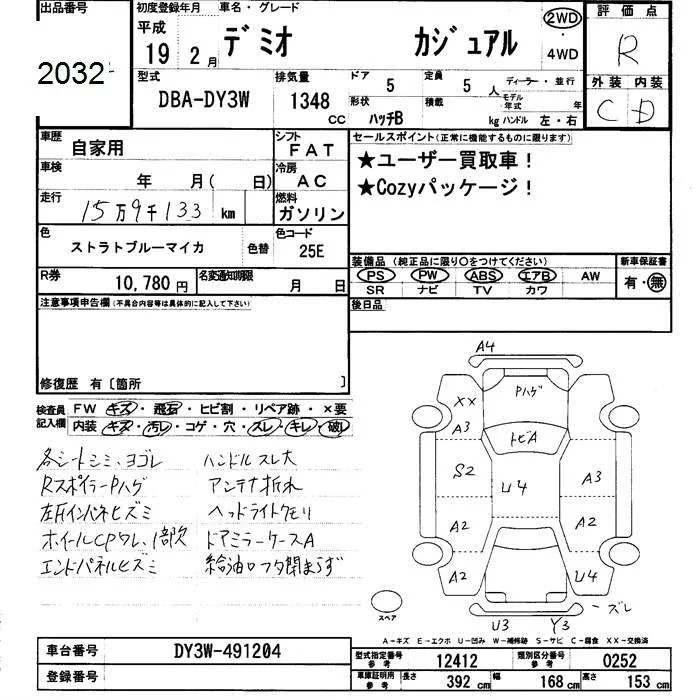 出品番号 初度登録年月 車名・グレード 2WD 評価点
平成
19 2月 デミオ カジュアル ・ R
4WD
2032 型式 排気量 ドア 5 定員 5 人 ディーラー・並行 外装 内装
DBA-DY3W 1348 cc 形状 ハッチB 積載 kg モデル年式 年 C D
ハンドル 左・右
車歴 自家用 シフト FAT セールスポイント(正常に機能するものに限ります)
車検 年 月( 日) 冷房 AC ★ユーザー買取車!
走行 15万9千133 km 燃料 ガソリン ★Cozyパッケージ!
色 ストラトブルーマイカ 色替 色コード 25E
装備品(純正品に限り○をつけてください) 新車保証書
R券 10,780円 名変通知期限 月 日 PS PW ABS エアB AW 有・無
SR ナビ TV カワ
注意事項申告欄(不具合内容等は具体的に記入して下さい) 後日品
修復歴 有〔箇所 〕
検査員記入欄 FW キズ・飛石・ヒビ割・リペア跡・×要
内装 キズ・汚レ・コゲ・穴・スレ・キレ・破レ
各シートシミ、ヨゴレ ハンドルスレ大
RスポイラーPハゲ アンテナ折れ
左右インパネヒズミ ヘッドライトクモリ
ホイールCPワレ、1部欠 ドアミラーケースA
エンドパネルヒズミ 給油口フタ閉まらず
A4
Pハゲ
XX
A3 トビA
S2 U4 A3
A2 A2
A2 U4
ズレ
スペア U3 Y3
A-キズ E-エクボ U-凹み W-補修跡 S-サビ C-腐食 XX-交換済
車台番号 DY3W-491204 型式指定番号 参考 12412 類別区分番号 参考 0252
登録番号 車庫証明用 参考 長さ 392 cm 幅 168 cm 高さ 153 cm